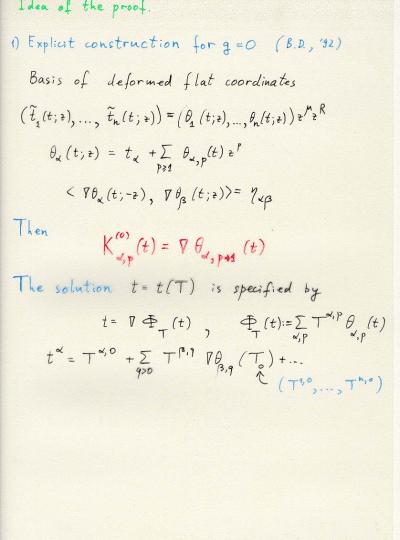 Idea of the proof.
1) Explicit construction for g=0 (B.D., '92)
Basis of deformed flat coordinates
(t̃₁(t;z),..., t̃ₙ(t;z)) = (θ₁(t;z),...,θₙ(t;z)) z^μ z^R
θ_α(t;z) = t_α + Σ_{p≥1} θ_{α,p}(t) z^p
< ∇θ_α(t;-z), ∇θ_β(t;z)> = η_{αβ}
Then
K^{(0)}_{α,p}(t) = ∇ θ_{α,p+1}(t)
The solution t = t(T) is specified by
t = ∇ Φ_T(t) , Φ_T(t) := Σ_{α,p} T^{α,p} θ_{α,p}(t)
t^α = T^{α,0} + Σ_{q>0} T^{β,q} ∇θ_{β,q}(T₀) + ...
(T^{1,0},...,T^{n,0})